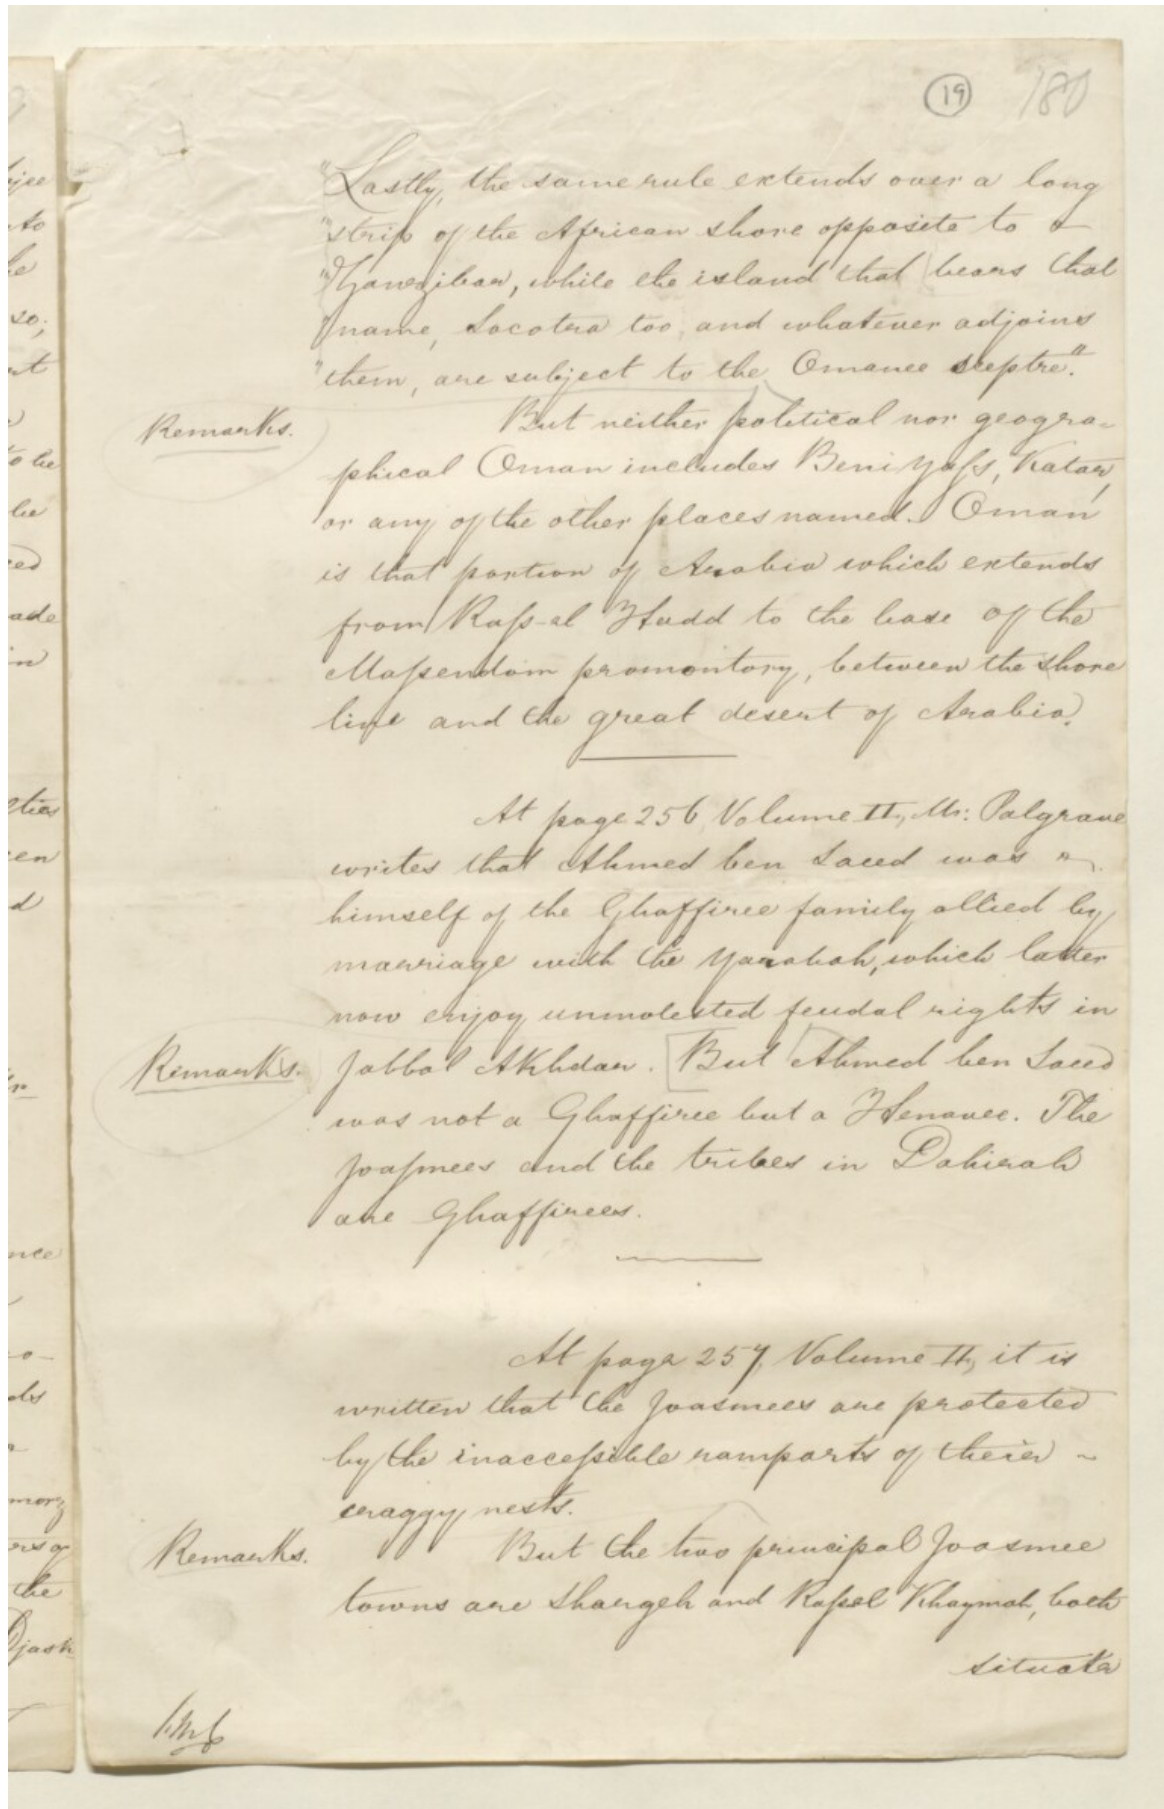 19 180
"Lastly, the same rule extends over a long
"strip of the African shore opposite to
"Zanzibar, while the island that bears that
"name, Socotra too, and whatever adjoins
"them, are subject to the Omanee sceptre."
Remarks. But neither political nor geogra-
phical Oman includes Beni Yass, Katar,
or any of the other places named. Oman
is that portion of Arabia which extends
from Rass-al Hadd to the base of the
Massendom promontory, between the shore
line and the great desert of Arabia.
At page 256, Volume II, Mr: Palgrave
writes that Ahmed ben Saeed was
himself of the Ghaffiree family allied by
marriage with the Yaarabah, which latter
now enjoy unmolested feudal rights in
Remarks. Jabbal Akhdar. But Ahmed ben Saeed
was not a Ghaffiree but a Henavee. The
Joasmees and the tribes in Dahirah
are Ghaffirees.
At page 257, Volume II, it is
written that the Joasmees are protected
by the inaccessible ramparts of their
craggy nests.
Remarks. But the two principal Joasmee
towns are Shargeh and Rassel Khaymah, both
situate